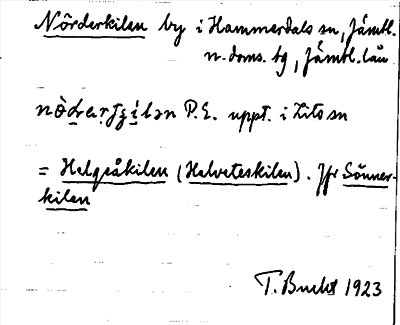 Nörderkilen by i Hammerdals sn, Jämtl.
n. doms. tg, Jämtl. län
P.E. uppt. i Lits sn
= Helgeåkilen (Helveteskilen). Jfr Sönner-
kilen
T. Bucht 1923